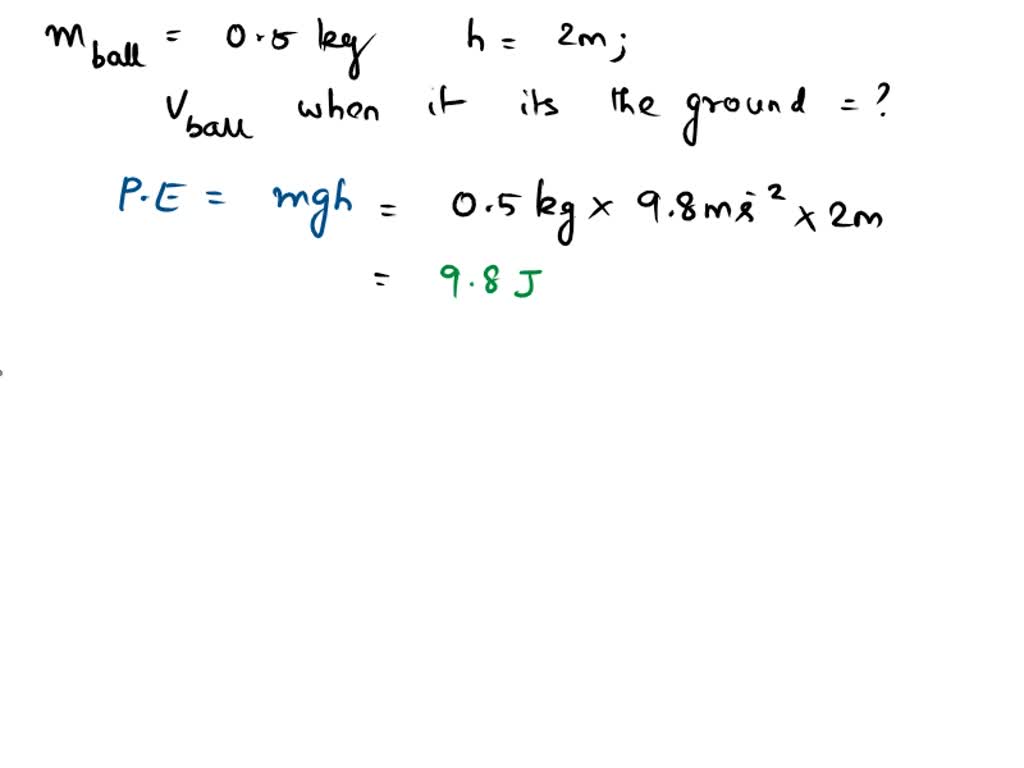 m ball = 0.5 kg h = 2m;
V ball when it its the ground = ?
P.E = mgh = 0.5 kg × 9.8 ms⁻² × 2m
= 9.8 J